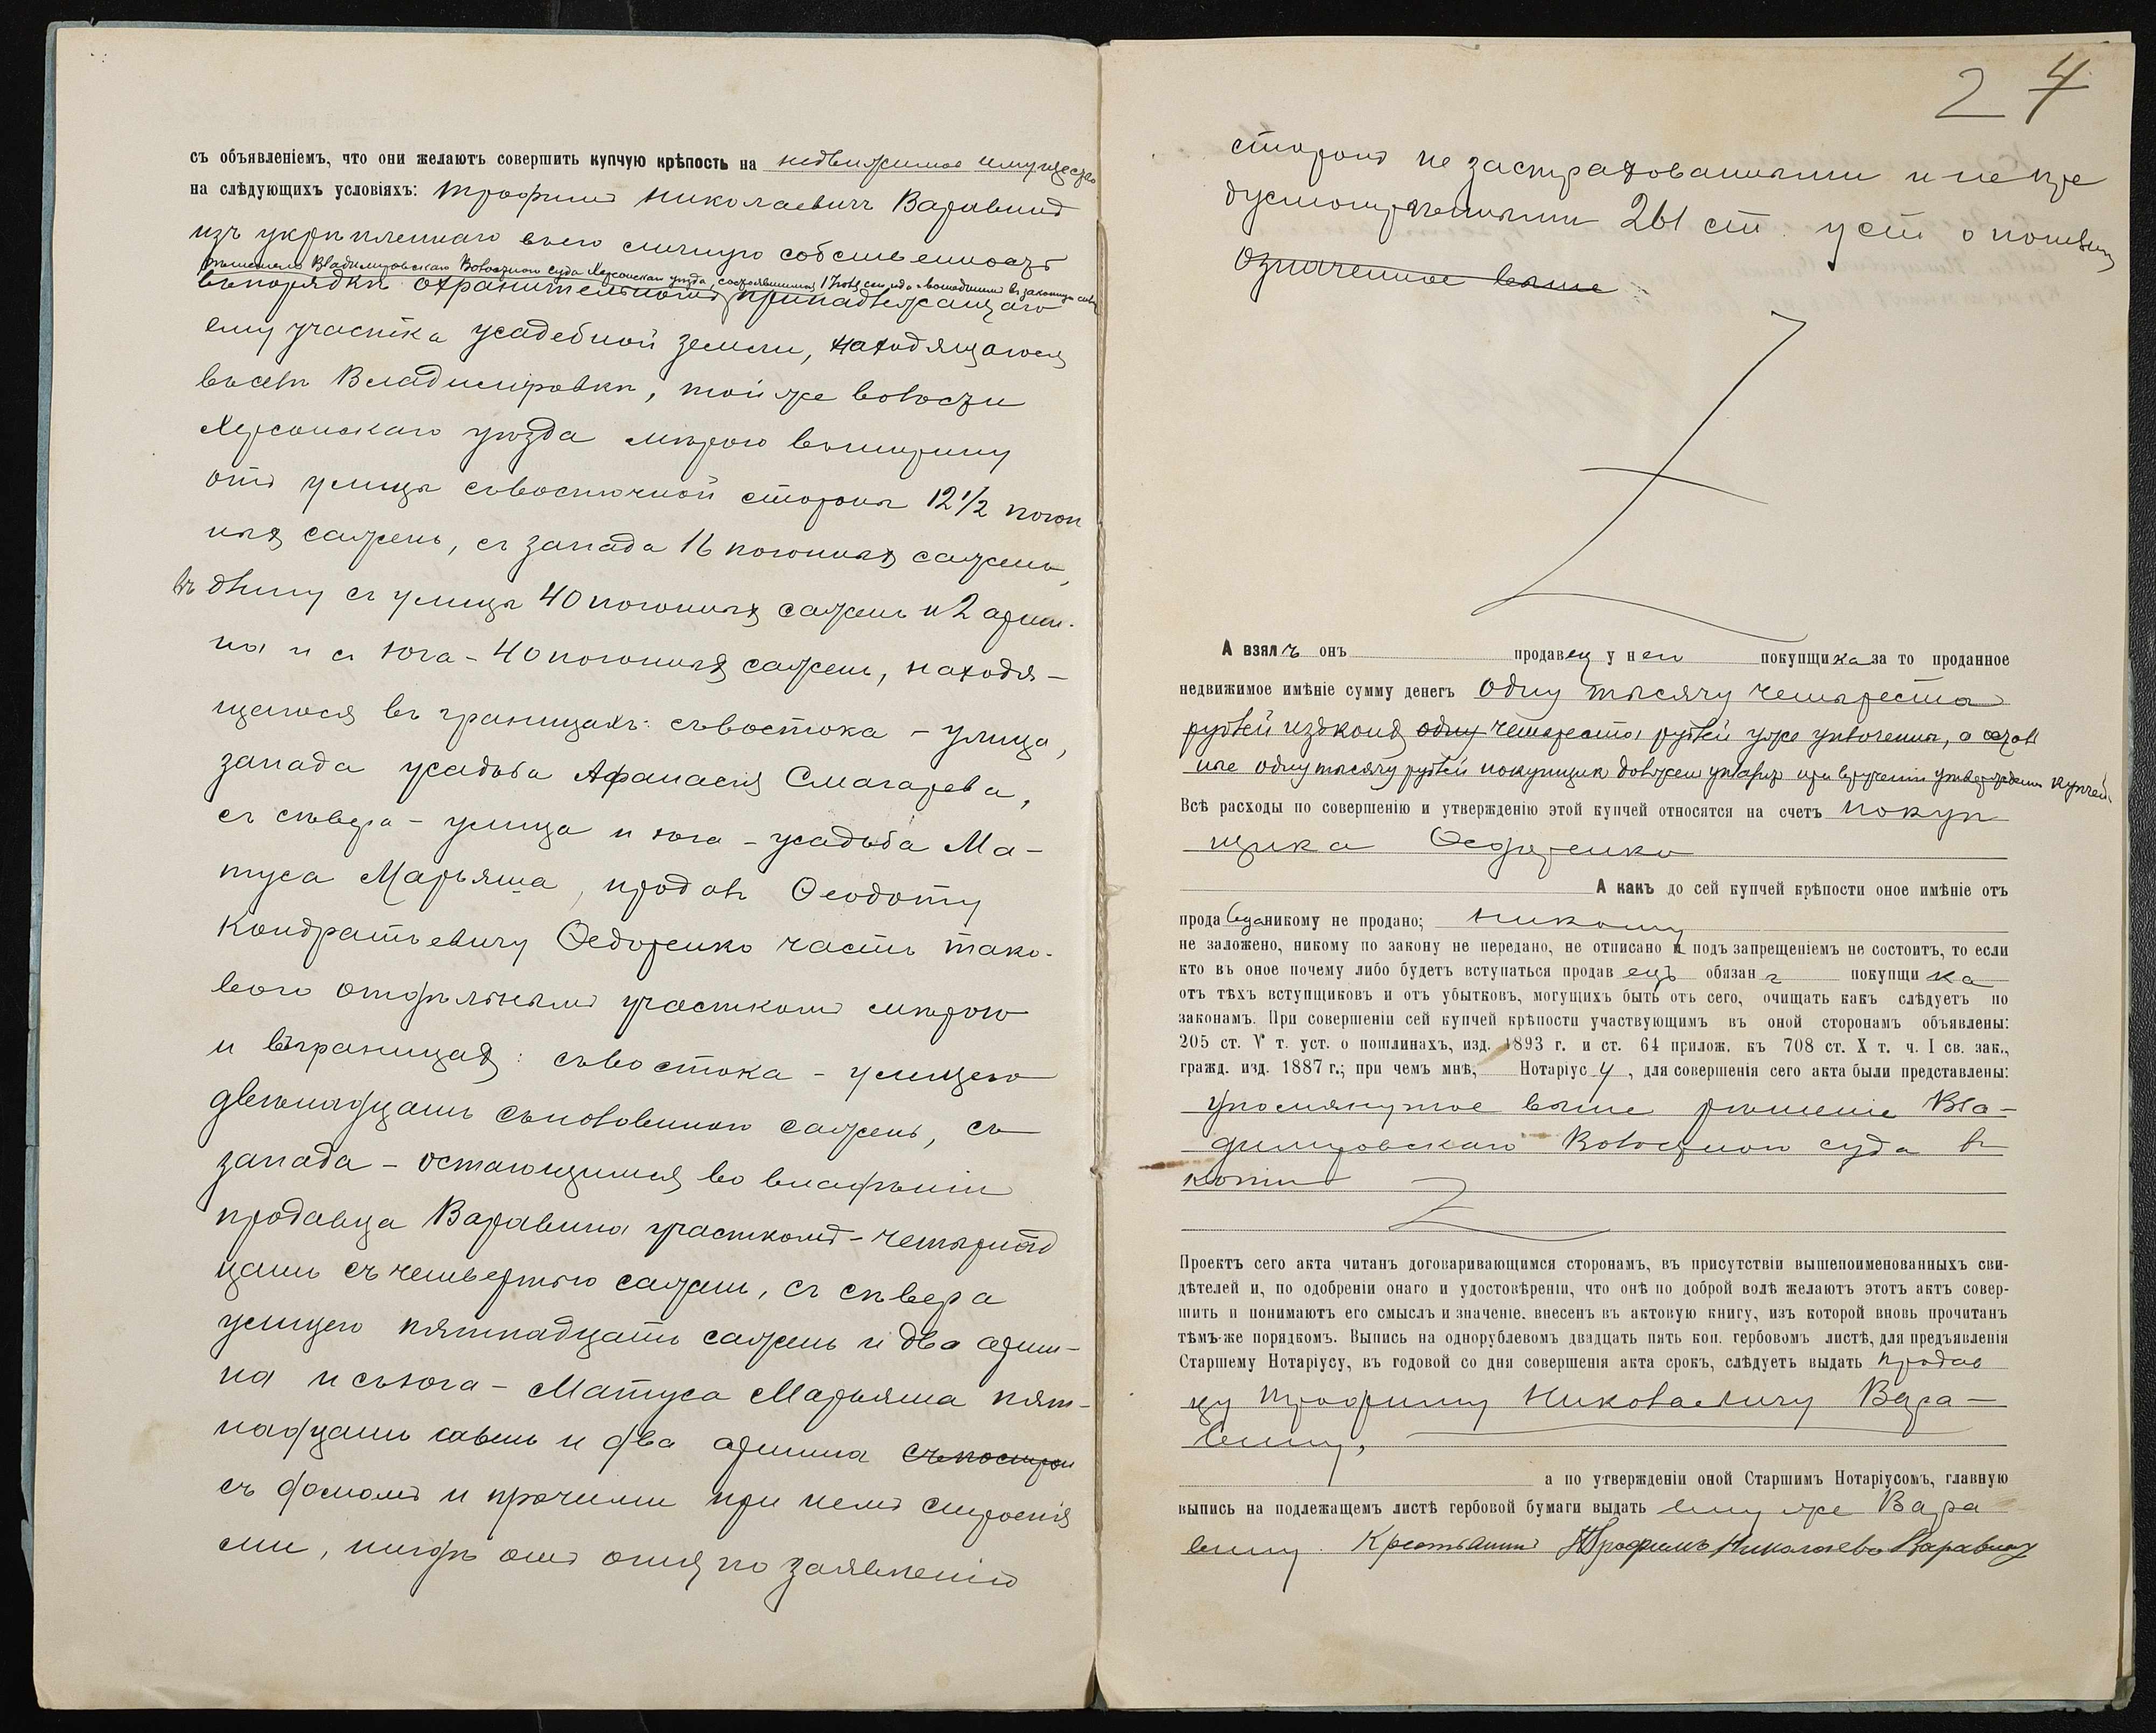 съ объявленіемъ, что они желаютъ совершить купчую крѣпость на недвижимое имущество
на слѣдующихъ условіяхъ: Трофимъ Николаевичъ Варавинъ
изъ укрѣпленнаго въ его личную собственность
рѣшеніемъ Владимировскаго Волостного суда Херсонскаго уѣзда, состоявшимся 17 сего и вошедшимъ въ законную силу
въ порядкѣ охранительномъ принадлежащаго
ему участка усадебной земли, находящагося
въ селѣ Владимировкѣ, той же волости
Херсонскаго уѣзда мѣрою въ ширину
отъ улицы съ восточной стороны 12 1/2 погон
ныхъ сажень, съ запада 16 погонныхъ сажень,
въ длину съ улицы 40 погонныхъ сажень и 2 арши-
на и съ юга - 40 погонныхъ сажень, находя-
щагося въ границахъ: съ востока - улица,
запада усадьба Афанасія Смагарева,
съ сѣвера - улица и юга - усадьба Ма-
туса Марьяша, продалъ Ѳеодоту
Кондратьевичу Ѳедоренко часть тако-
вого отдѣльнымъ участкомъ мѣрою
и въ границахъ: съ востока - улицею
двѣнадцать съ половиною сажень, съ
запада - остающимся во владѣніи
продавца Варавина участкомъ - четырнад
цать съ четвертью сажень, съ сѣвера
улицею пятнадцать сажень и два арши-
на и съ юга - Матуса Марьяша пят-
надцать сажень и два аршина съ построй
съ домомъ и прочими при немъ строенія
ми, нигдѣ отъ огня по заявленію
2 4
сторонъ не застрахованными и не пре
дусмотрѣнными 261 ст. уст. о пошлин
означенное выше
А взялъ онъ продавец у него покупщика за то проданное
недвижимое имѣніе сумму денегъ одну тысячу четыреста
рублей изъ коихъ одну четыреста рублей уже уплочены, а осталь
ные одну тысячу рублей покупщик должен уплатить при врученіи утвержденной купчей.
Всѣ расходы по совершенію и утвержденію этой купчей относятся на счетъ покуп
щика Ѳедоренко
А какъ до сей купчей крѣпости оное имѣніе отъ
продавца никому не продано; никому
не заложено, никому по закону не передано, не отписано и подъ запрещеніемъ не состоитъ, то если
кто въ оное почему либо будетъ вступаться продавецъ обязанъ покупщика
отъ тѣхъ вступщиковъ и отъ убытковъ, могущихъ быть отъ сего, очищать какъ слѣдуетъ по
законамъ. При совершеніи сей купчей крѣпости участвующимъ въ оной сторонамъ объявлены:
205 ст. V т. уст. о пошлинахъ, изд. 1893 г. и ст. 64 прилож. къ 708 ст. X т. ч. I св. зак.,
гражд. изд. 1887 г.; при чемъ мнѣ, Нотаріусу, для совершенія сего акта были представлены:
упомянутое выше рѣшеніе Вла-
димировскаго Волостного суда въ
копіи
Проектъ сего акта читанъ договаривающимся сторонамъ, въ присутствіи вышепоименованныхъ сви-
дѣтелей и, по одобреніи онаго и удостовѣреніи, что онѣ по доброй волѣ желаютъ этотъ актъ совер-
шить и понимаютъ его смыслъ и значеніе. внесенъ въ актовую книгу, изъ которой вновь прочитанъ
тѣмъ-же порядкомъ. Выпись на однорублевомъ двадцать пять коп. гербовомъ листѣ, для предъявленія
Старшему Нотаріусу, въ годовой со дня совершенія акта срокъ, слѣдуетъ выдать продав
цу Трофиму Николаевичу Вара-
вину,
а по утвержденіи оной Старшимъ Нотаріусомъ, главную
выпись на подлежащемъ листѣ гербовой бумаги выдать ему же Вара
вину. Крестьянинъ Трофимъ Николаевъ Варавинъ